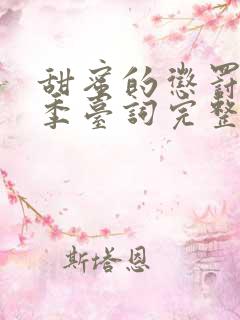 甜蜜的懲罰
季臺詞完整
斯塔恩